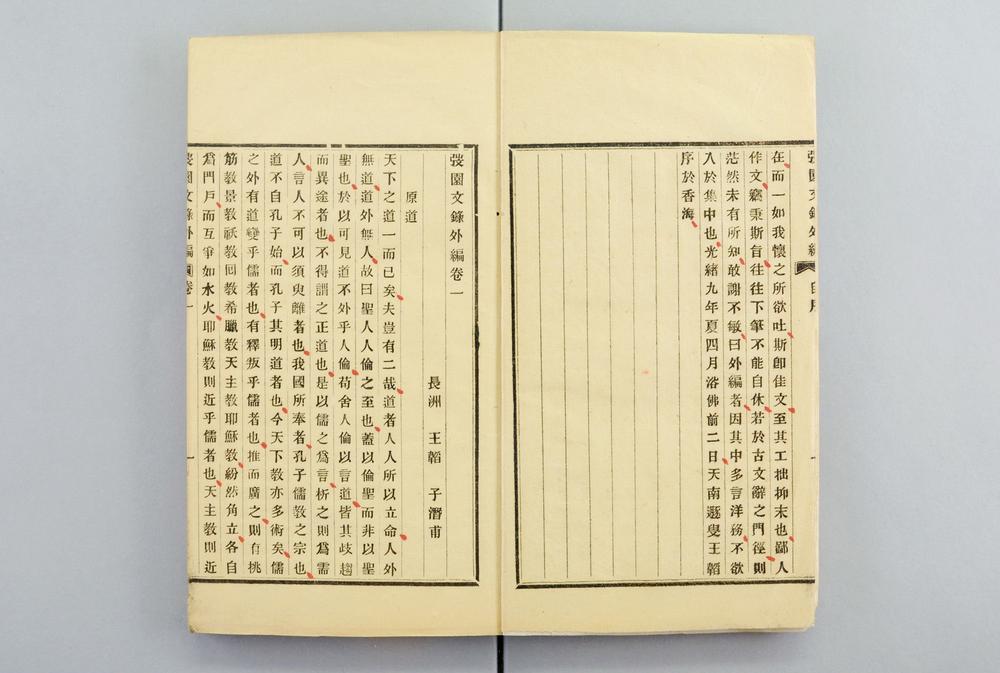 弢園文錄外編
自序
在而一如我懷之所欲吐斯卽佳文至其工拙抑末也鄙人
作文竊秉斯旨往往下筆不能自休若於古文辭之門徑則
茫然未有所知敢謝不敏曰外編者因其中多言洋務不欲
入於集中也光緒九年夏四月浴佛前二日天南遯叟王韜
序於香海
弢園文錄外編卷一
長洲 王韜 子潛甫
原道
天下之道一而已矣夫豈有二哉道者人人所以立命人外
無道道外無人故曰聖人人倫之至也蓋以倫聖而非以聖
聖也於以可見道不外乎人倫苟舍人倫以言道皆其歧趨
而異途者也不得謂之正道也是以儒之爲言析之則爲需
人言人不可以須臾離者也我國所奉者孔子儒敎之宗也
道不自孔子始而孔子其明道者也今天下敎亦多術矣儒
之外有道變乎儒者也有釋叛乎儒者也推而廣之則有挑
筋敎景敎祆敎回敎希臘敎天主敎耶穌敎紛然角立各自
爲門戶而互爭如水火耶穌敎則近乎儒者也天主敎則近
弢園文錄外編
卷一
一